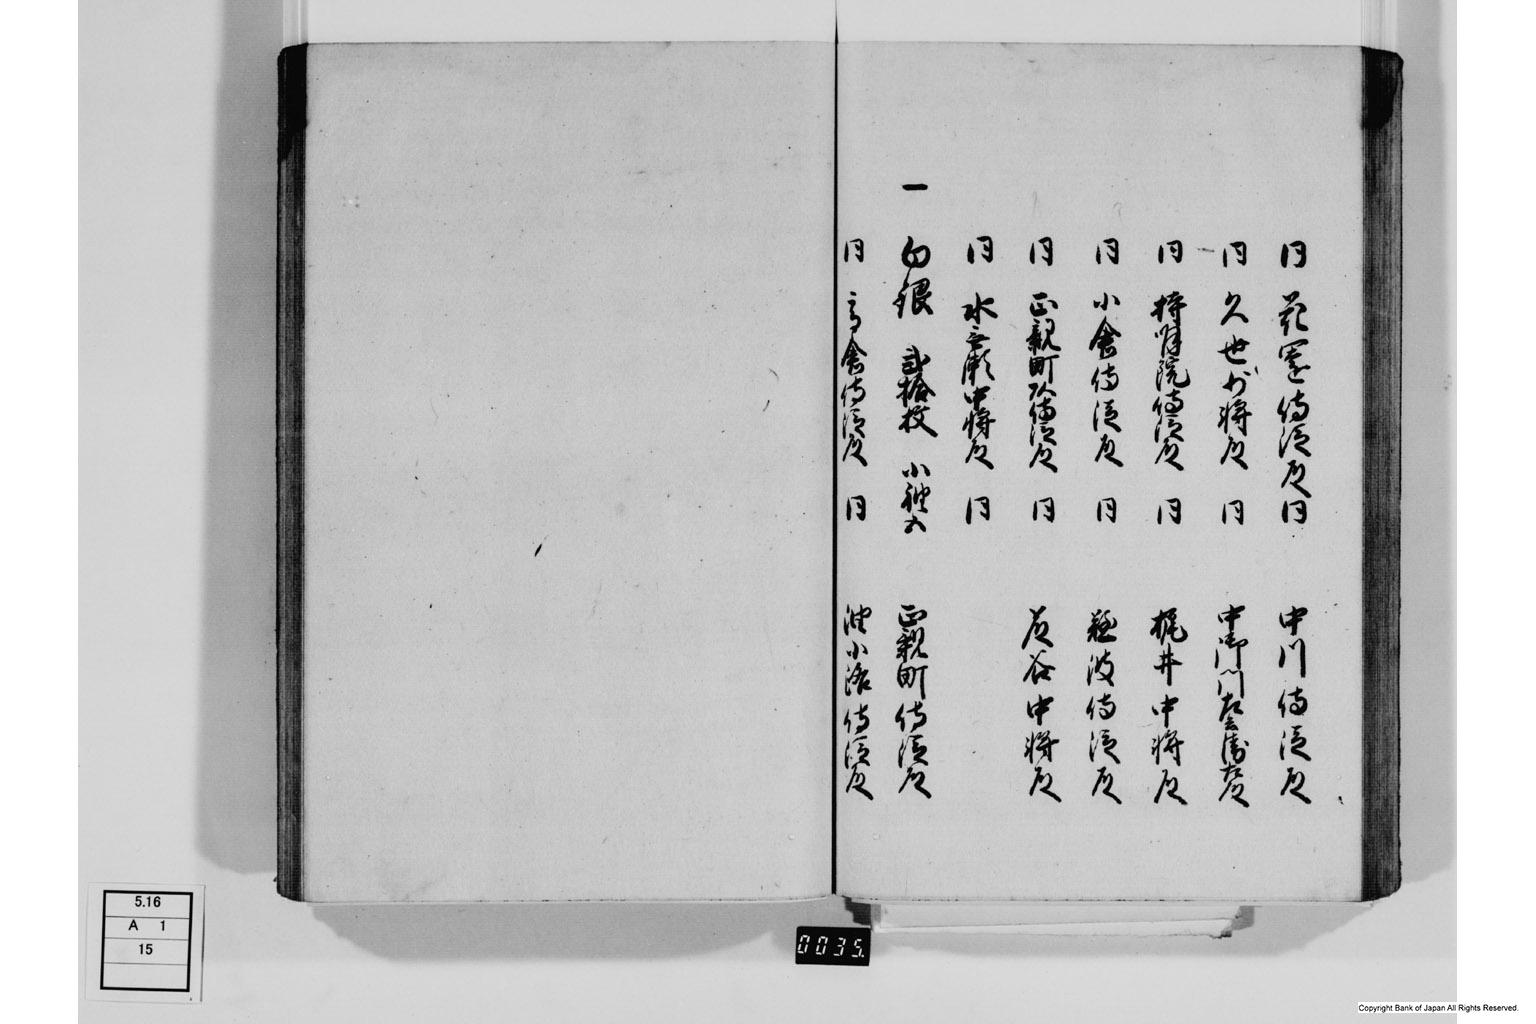 同 花園侍従殿 同 中川侍従殿
同 久世少将殿 同 中御門左兵衛佐殿
同 持明院侍従殿 同 梶井中将殿
同 小倉侍従殿 同 難波侍従殿
同 正親町侍従殿 同 谷中将殿
同 水無瀬中将殿 同
一 白銀 弐拾枚 小袖五 正親町侍従殿
同 高倉侍従殿 同 油小路侍従殿
5.16
A 1
15
0035.
Copyright Bank of Japan All Rights Reserved.